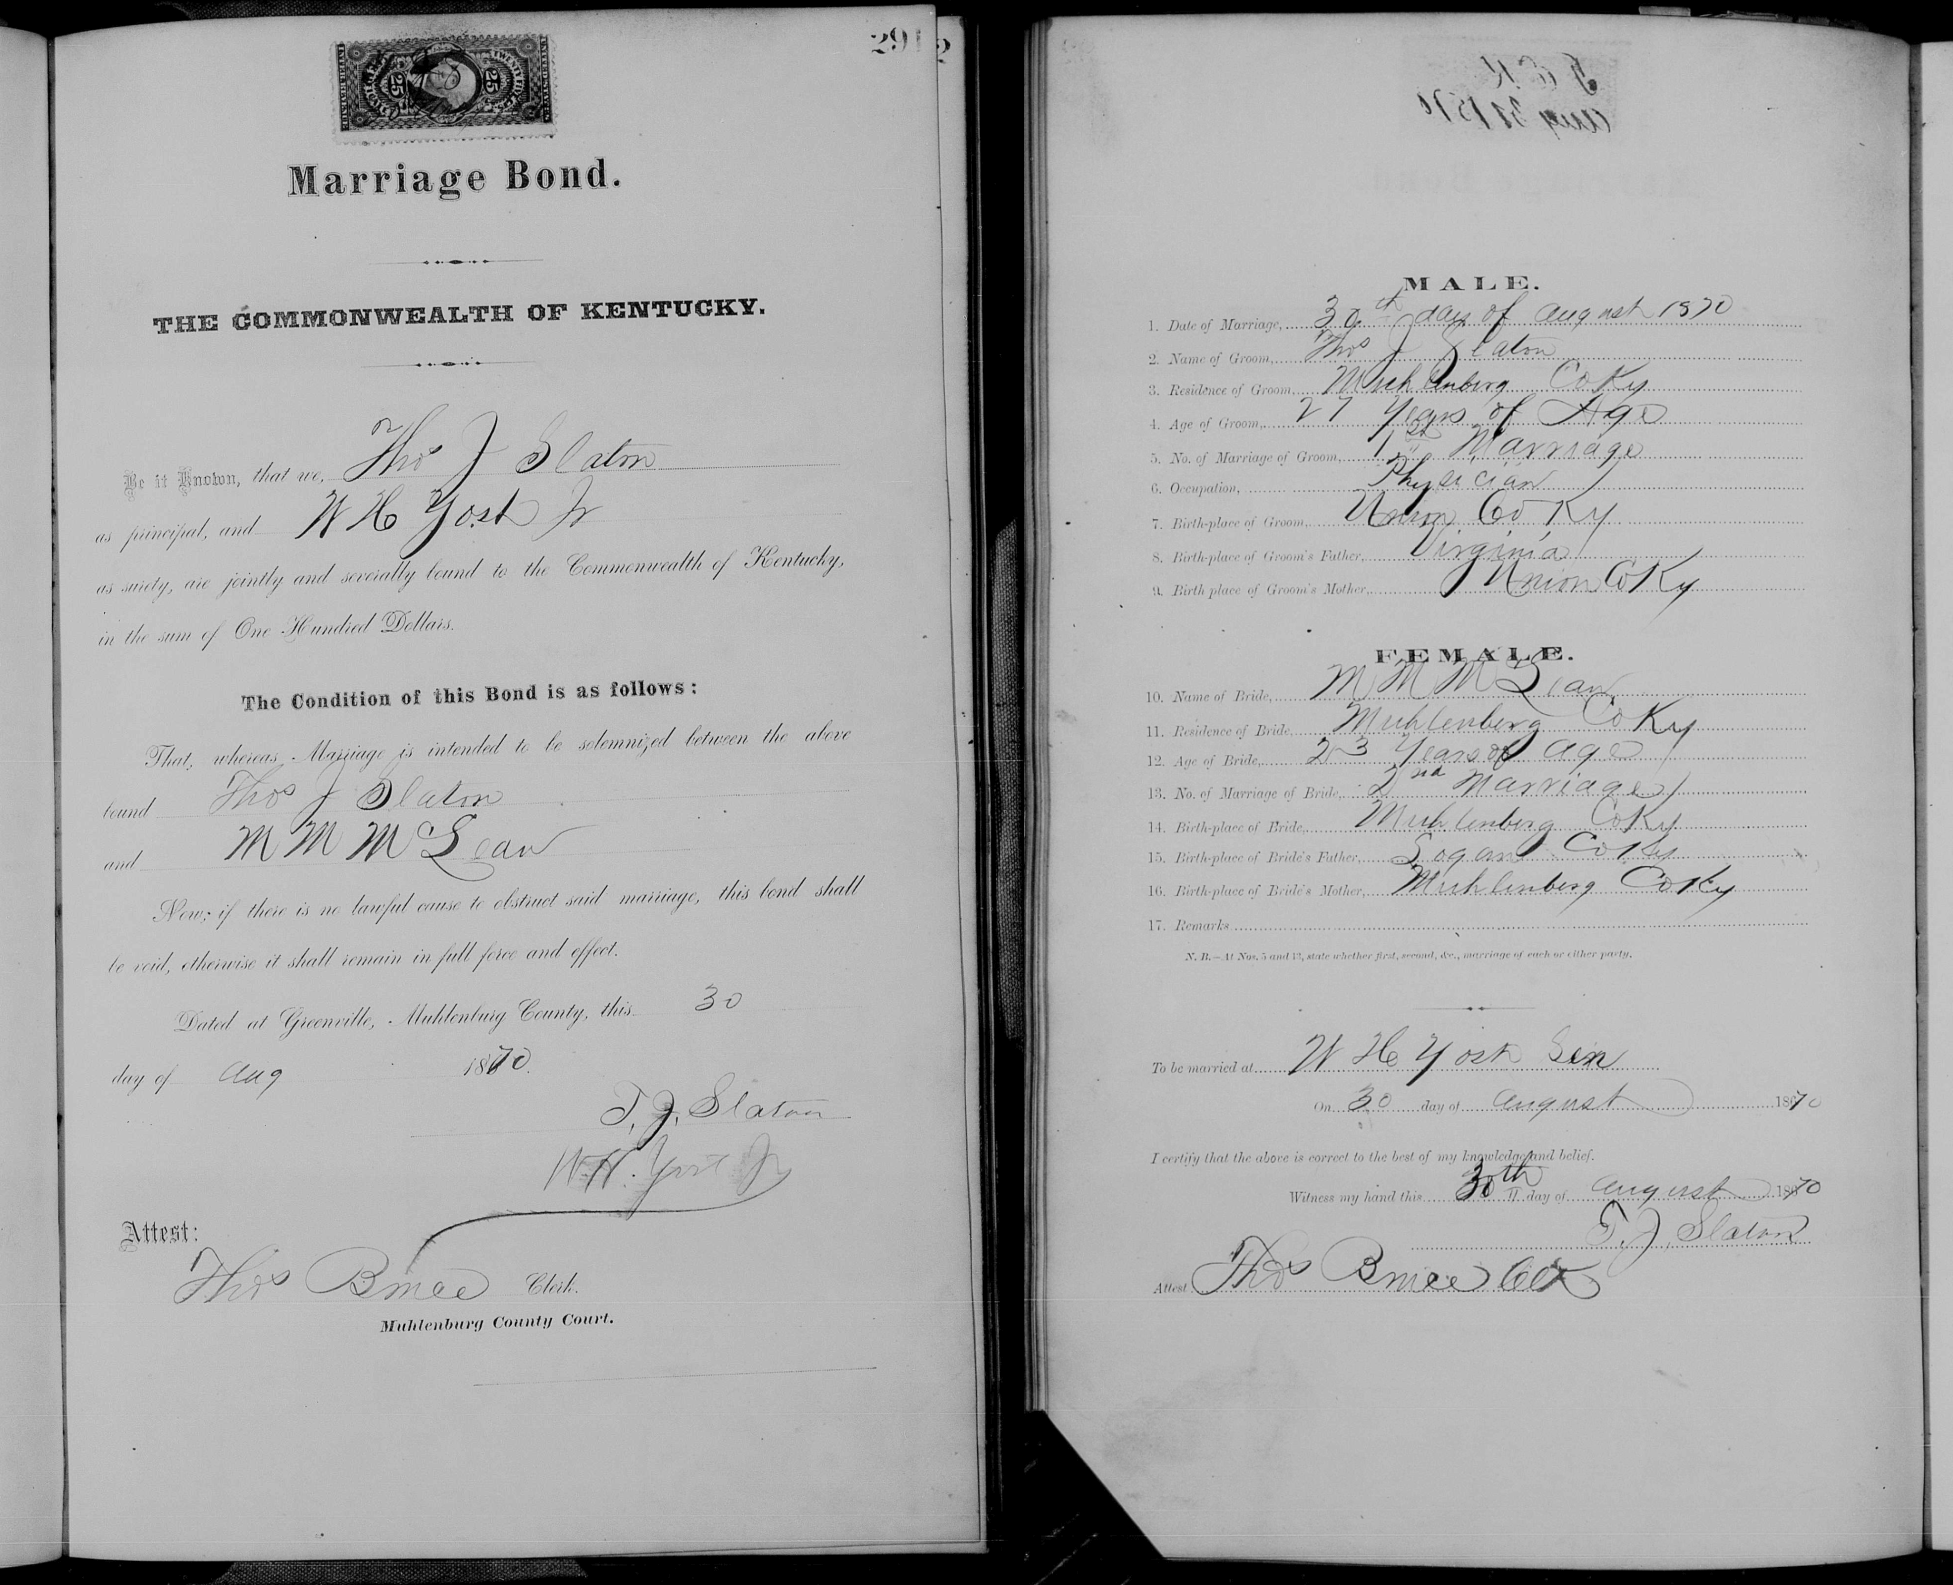 291
2
Marriage Bond.
THE COMMONWEALTH OF KENTUCKY.
Be it Known, that we, Thos J Slaton
as principal, and W H Yost Jr
as surety, are jointly and severally bound to the Commonwealth of Kentucky,
in the sum of One Hundred Dollars.
The Condition of this Bond is as follows:
That, whereas Marriage is intended to be solemnized between the above
bound Thos J Slaton
and M M McLean
Now, if there is no lawful cause to obstruct said marriage, this bond shall
be void, otherwise it shall remain in full force and effect.
Dated at Greenville, Muhlenburg County, this 30
day of Aug 1870.
T. J. Slaton
W. H. Yost Jr
Attest:
Thos Bruce Clerk.
Muhlenburg County Court.
MALE.
1. Date of Marriage, 30th day of August 1870
2. Name of Groom, Thos J Slaton
3. Residence of Groom, Muhlenberg Co Ky
4. Age of Groom, 27 Years of Age
5. No. of Marriage of Groom, 1st Marriage
6. Occupation, Physician
7. Birth-place of Groom, Union Co Ky
8. Birth-place of Groom's Father, Virginia
9. Birth place of Groom's Mother, Union Co Ky
FEMALE.
10. Name of Bride, M M McLean
11. Residence of Bride, Muhlenberg Co Ky
12. Age of Bride, 23 Years of age
13. No. of Marriage of Bride, 2nd Marriage
14. Birth-place of Bride, Muhlenberg Co Ky
15. Birth-place of Bride's Father, Logan Co Ky
16. Birth-place of Bride's Mother, Muhlenberg Co Ky
17. Remarks
N. B.—At Nos. 5 and 13, state whether first, second, &c., marriage of each or either party.
To be married at W H Yost Sen
On 30 day of August 1870
I certify that the above is correct to the best of my knowledge and belief.
Witness my hand this 30th day of August 1870
T. J. Slaton
Attest Thos Bruce Clk